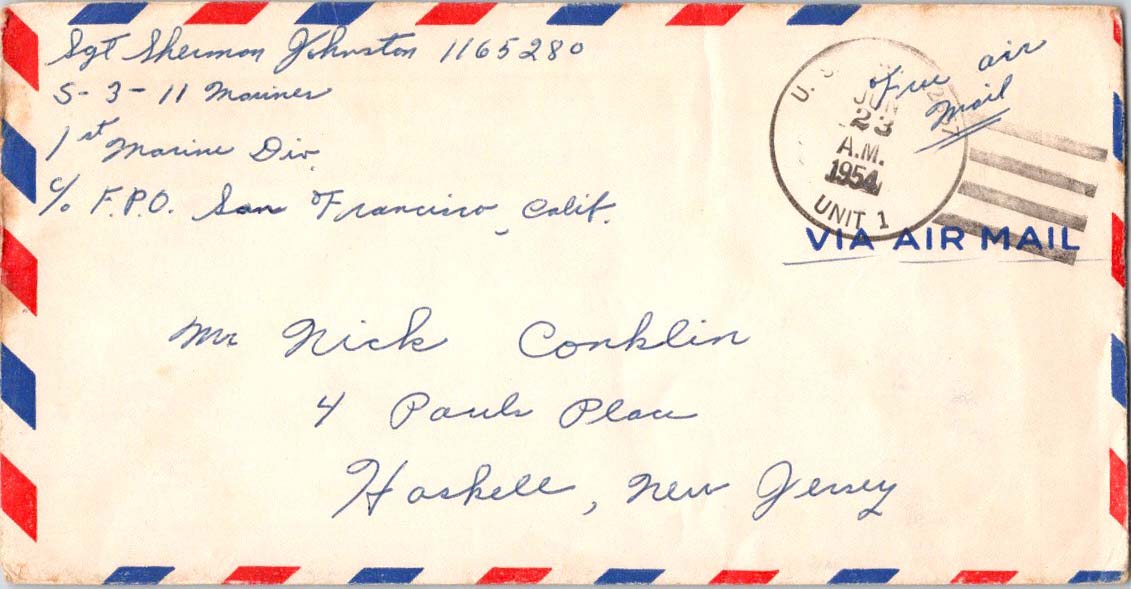 Sgt Sherman Johnston 1165280
S-3-11 Marines
1st Marine Div.
c/o F.P.O. San Francisco, Calif.
Free air
Mail
U.S.
JUN
23
A.M.
1954
UNIT 1
VIA AIR MAIL
Mr Nick Conklin
4 Pauls Place
Haskell, New Jersey